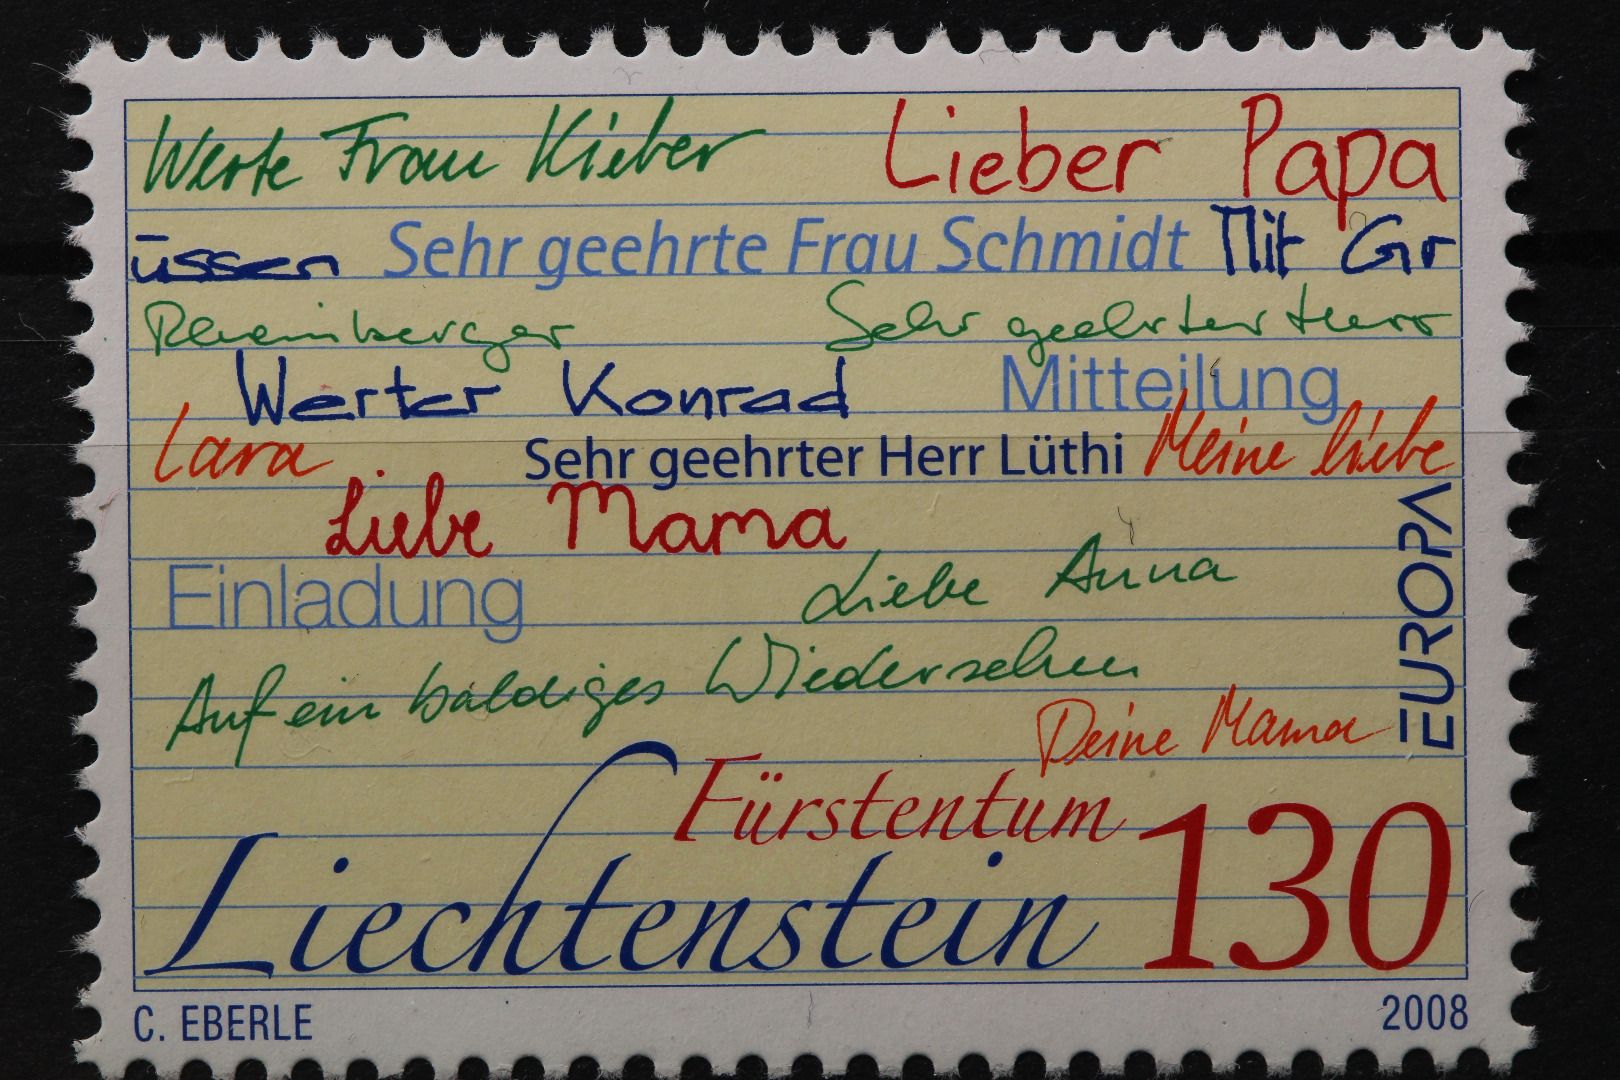 Werte Frau Kieber Lieber Papa
üssen Sehr geehrte Frau Schmidt Mit Gr
Rheinberger Sehr geehrter Herr
Werter Konrad Mitteilung
Lara Sehr geehrter Herr Lüthi Meine liebe
Liebe Mama
EUROPA
Einladung Liebe Anna
Auf ein baldiges Wiedersehen
Deine Mama
Fürstentum
Liechtenstein 130
C. EBERLE 2008